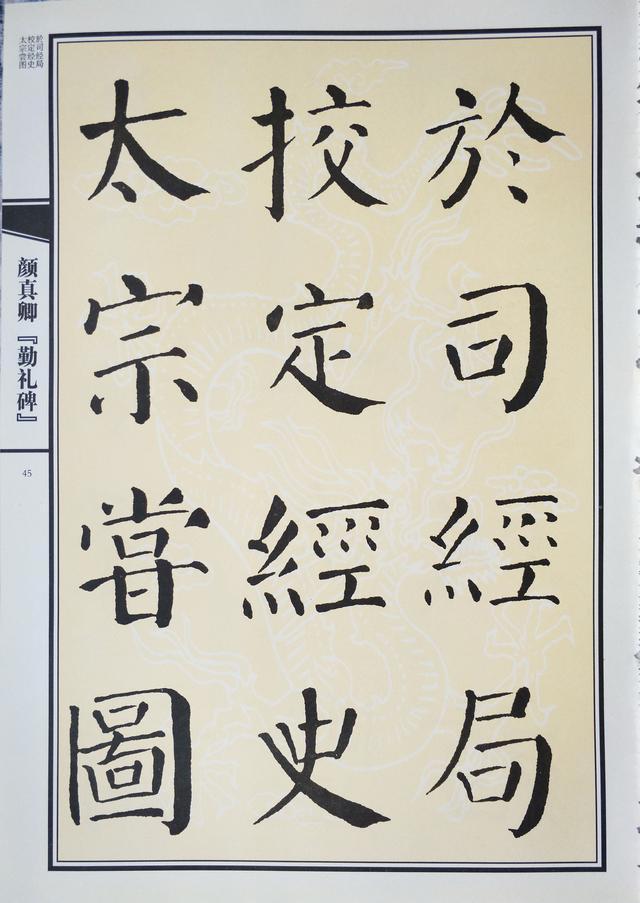 於司經局
挍定經史
太宗嘗圖
於司经局
校定经史
太宗尝图
颜真卿『勤礼碑』
45